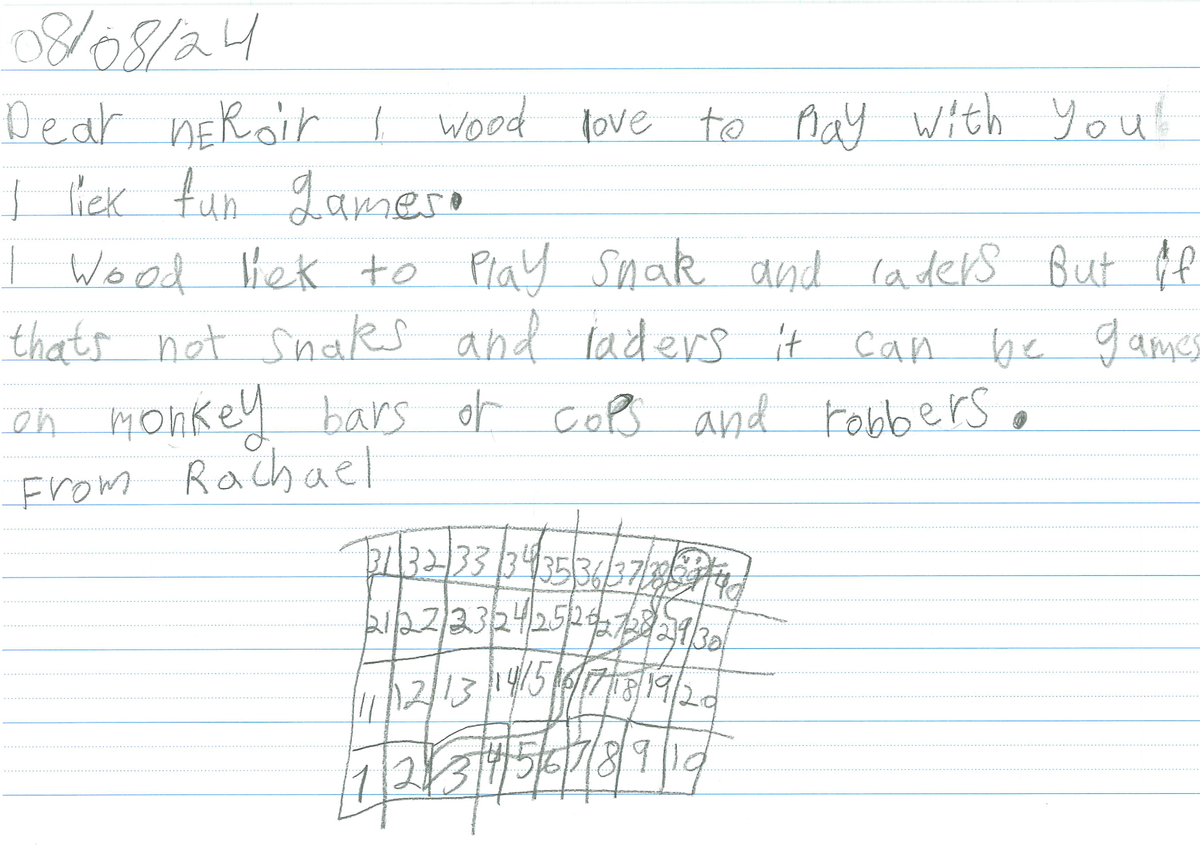 08/08/24
Dear nERoir I wood love to Play with you!
I liek fun games.
I wood liek to Play Snak and laders But if
thats not Snaks and laders it can be games
on monkey bars or cops and robbers.
From Rachael
31 32 33 34 35 36 37 38 39 40
21 22 23 24 25 26 27 28 29 30
11 12 13 14 15 16 17 18 19 20
1 2 3 4 5 6 7 8 9 10